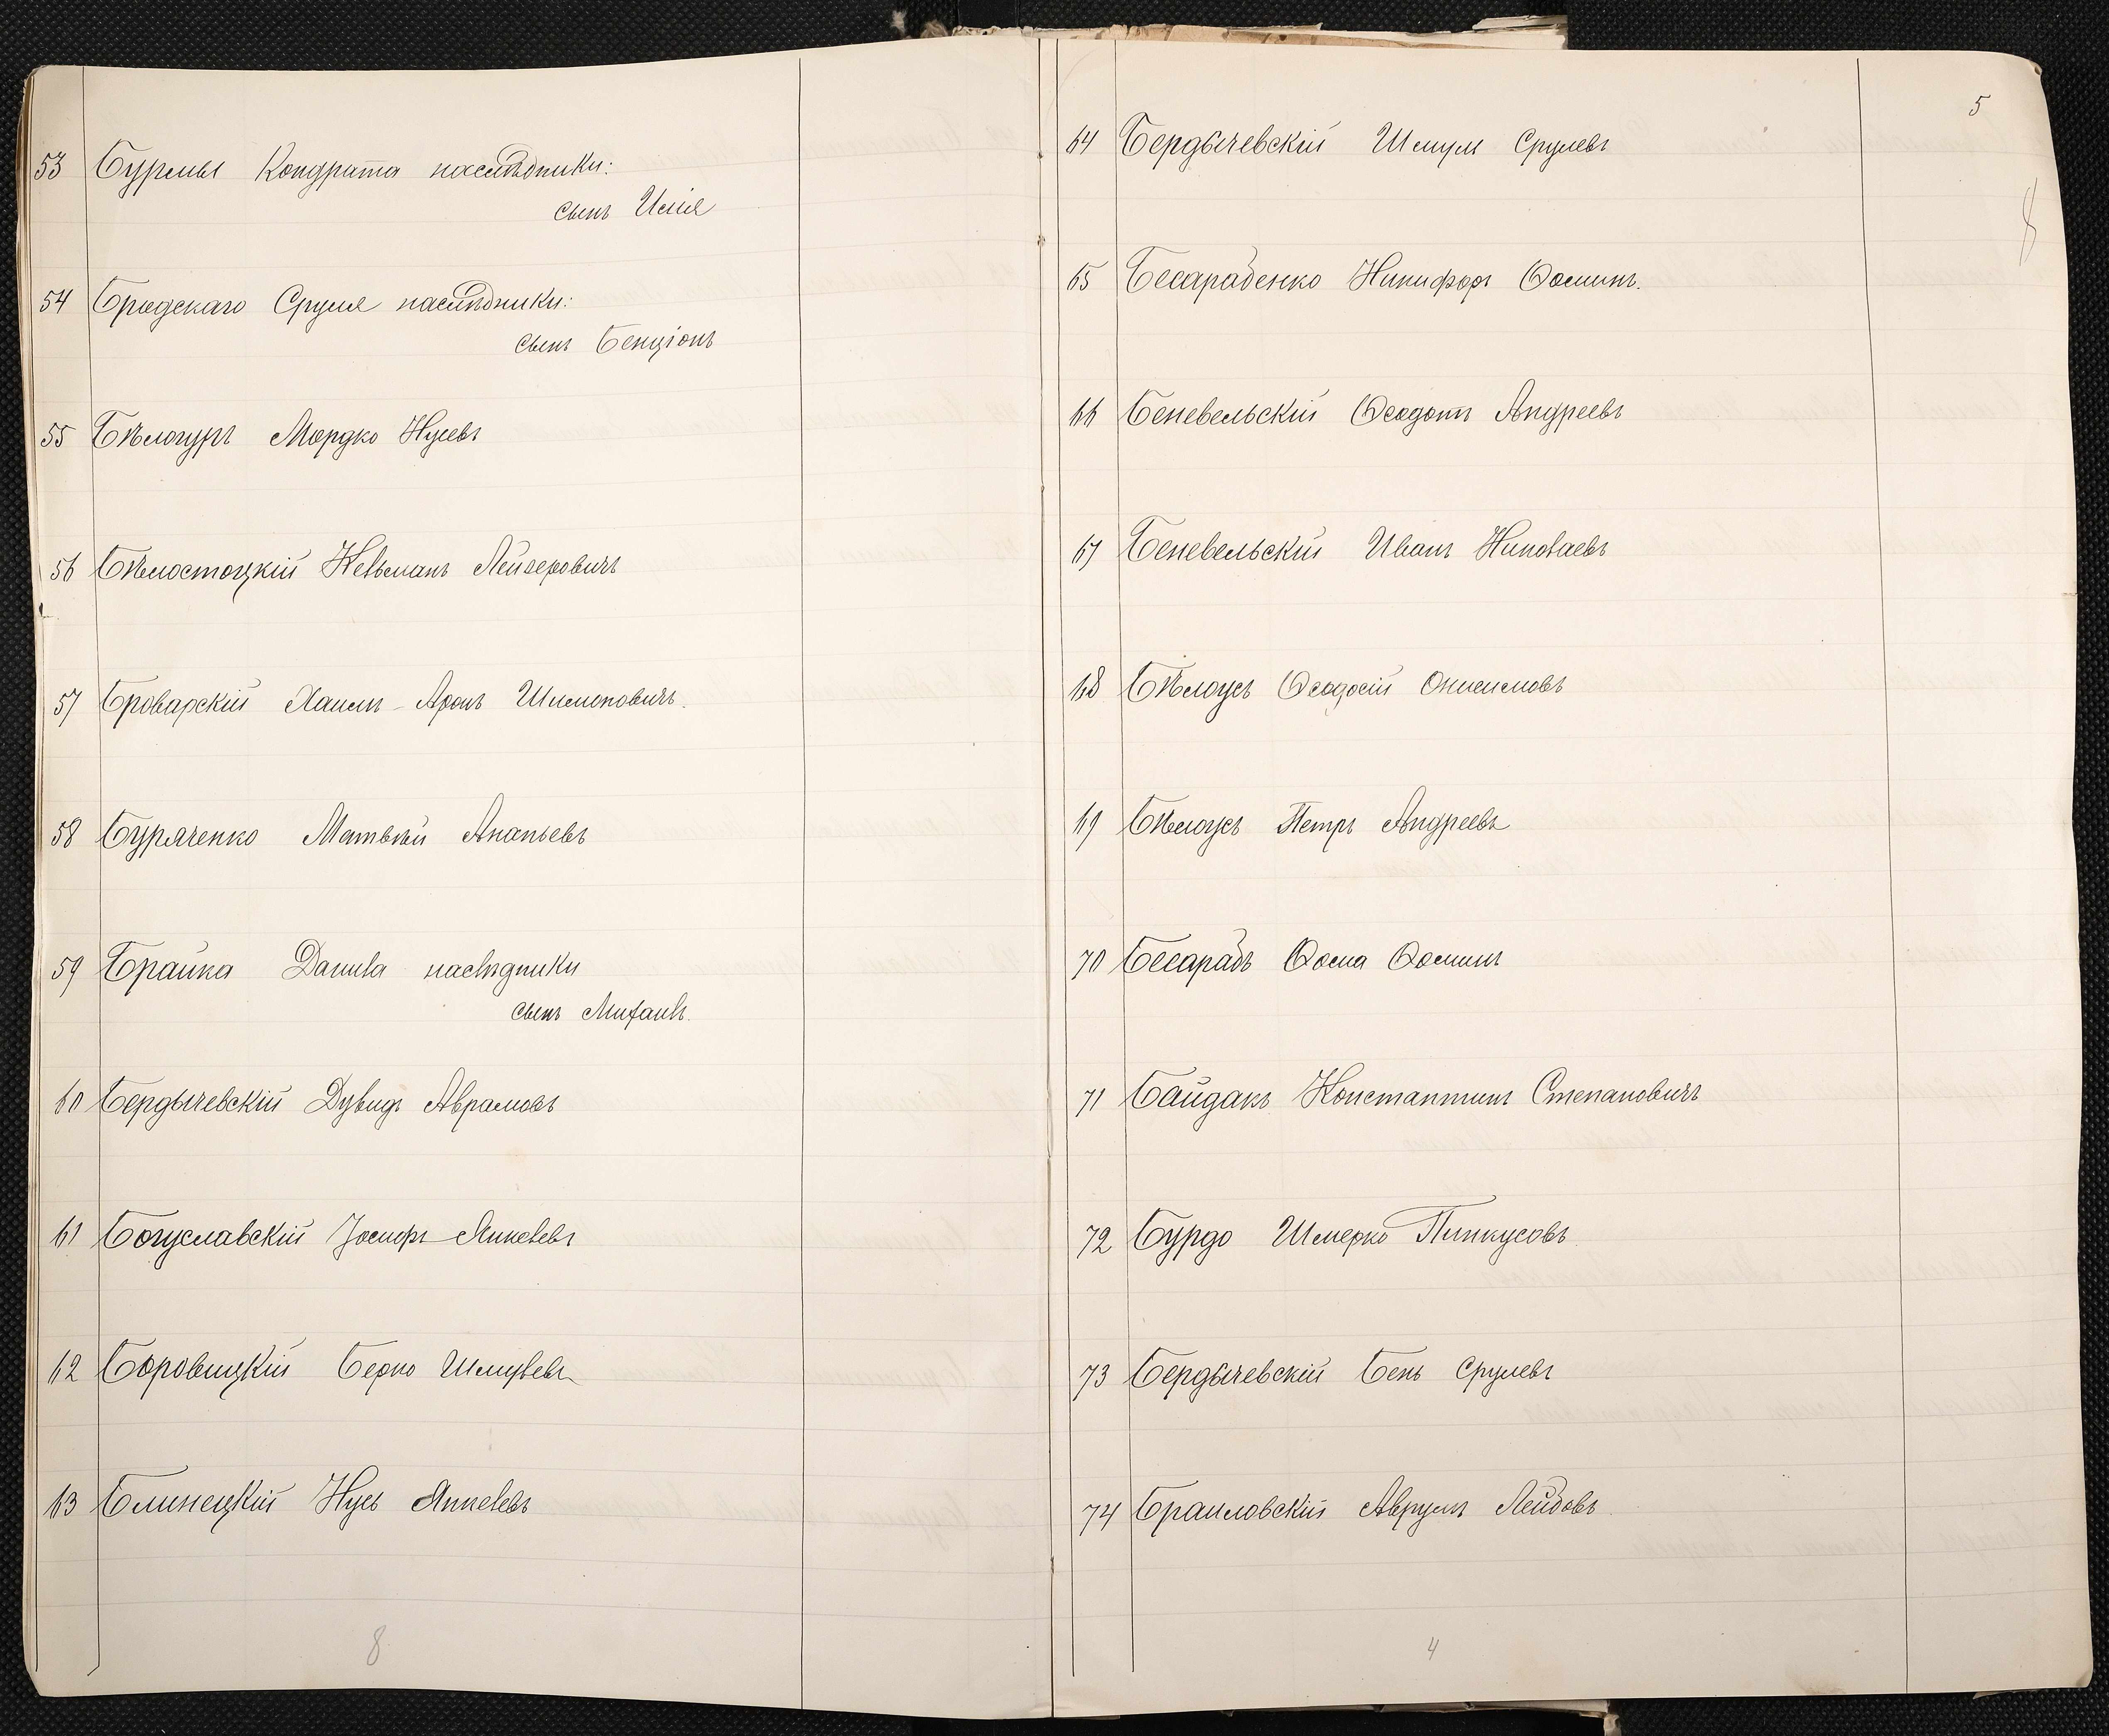 53 Бурмы Кондрата наслѣдники:
сынъ Исія
54 Бродскаго Сруля наслѣдники:
сынъ Бенціонъ
55 Бѣлогуръ Мордко Нусевъ
56 Бѣлостоцкій Кельманъ Лейзеровичъ
57 Броварскій Хаимъ-Аронъ Шимоновичъ.
58 Буряченко Матвѣй Ананьевъ
59 Брайка Данила наслѣдники
сынъ Михаилъ.
60 Бердычевскій Дувидъ Аврамовъ
61 Богуславскій Іосифъ Янкелевъ
62 Боровицкій Берко Шмулевъ
63 Блинецкій Нусь Янкелевъ
8
5
8
64 Бердычевскій Шмуль Срулевъ
65 Бесарабенко Никифоръ Ѳоминъ.
66 Беневельскій Ѳеодотъ Андреевъ
67 Беневельскій Иванъ Николаевъ
68 Бѣлоусъ Ѳеодосій Онисимовъ
69 Бѣлоусъ Петръ Андреевъ
70 Бесарабъ Ѳома Ѳоминъ
71 Байдакъ Константинъ Степановичъ
72 Бурдо Шмерко Пинкусовъ
73 Бердычевскій Бень Срулевъ
74 Браиловскій Аврумъ Лейбовъ
4